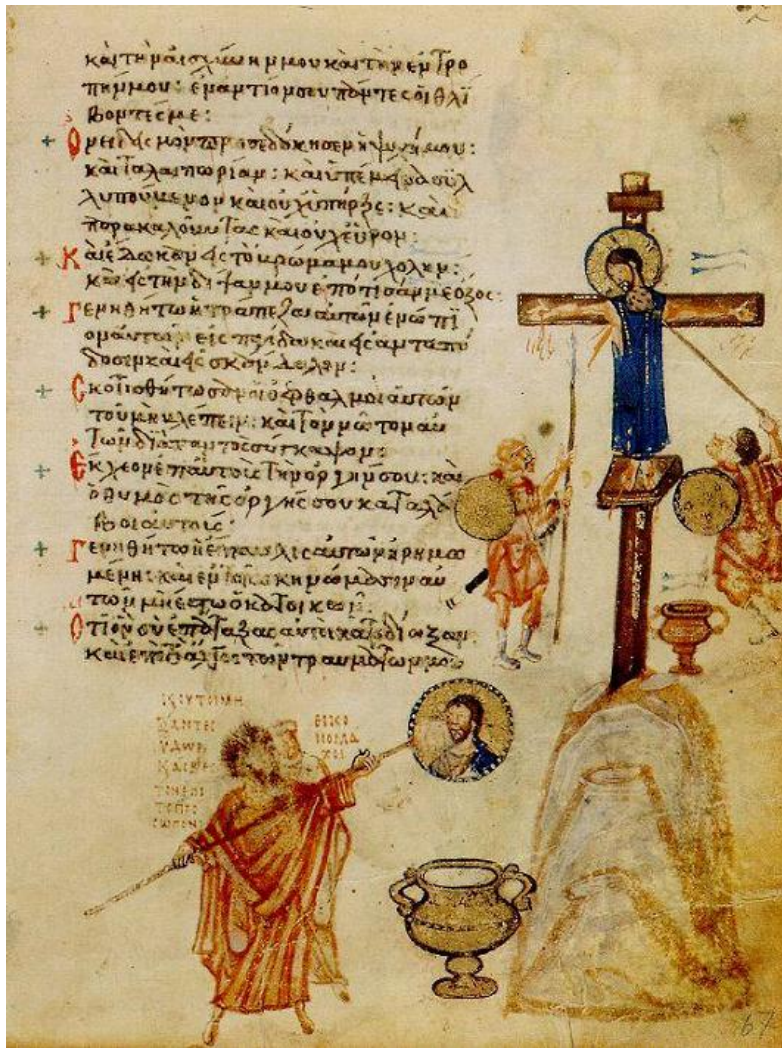 καὶ τὴν αἰσχύνην μου καὶ τὴν ἐντρο
πήν μου: ἐναντίον σου πάντες οἱ θλί
βοντές με:
Ὀνειδισμὸν προσεδόκησεν ἡ ψυχή μου:
καὶ ταλαιπωρίαν: καὶ ὑπέμεινα συλ
λυπούμενον καὶ οὐχ ὑπῆρξε: καὶ
παρακαλοῦντας καὶ οὐχ εὗρον:
Καὶ ἔδωκαν εἰς τὸ βρῶμά μου χολήν:
καὶ εἰς τὴν δίψαν μου ἐπότισάν με ὄξος:
Γενηθήτω ἡ τράπεζα αὐτῶν ἐνώπι
ον αὐτῶν εἰς παγίδα καὶ εἰς ἀνταπό
δοσιν καὶ εἰς σκάνδαλον:
Σκοτισθήτωσαν οἱ ὀφθαλμοὶ αὐτῶν
τοῦ μὴ βλέπειν: καὶ τὸν νῶτον αὐ
τῶν διὰ παντὸς σύγκαμψον:
Ἔκχεον ἐπ' αὐτοὺς τὴν ὀργήν σου: καὶ
ὁ θυμὸς τῆς ὀργῆς σου καταλά
βοι αὐτούς:
Γενηθήτω ἡ ἔπαυλις αὐτῶν ἠρημω
μένη: καὶ ἐν τοῖς σκηνώμασιν αὐ
τῶν μὴ ἔστω ὁ κατοικῶν:
Ὅτι ὃν σὺ ἐπάταξας αὐτοὶ κατεδίωξαν
καὶ ἐπὶ τὸ ἄλγος τῶν τραυμάτων μου
ΥΔΩΡ
ΤΟ ΠΡΟ
ΣΩΠΟΝ
ΕΙΚΟ
ΝΟΜΑ
ΧΟΙ
67